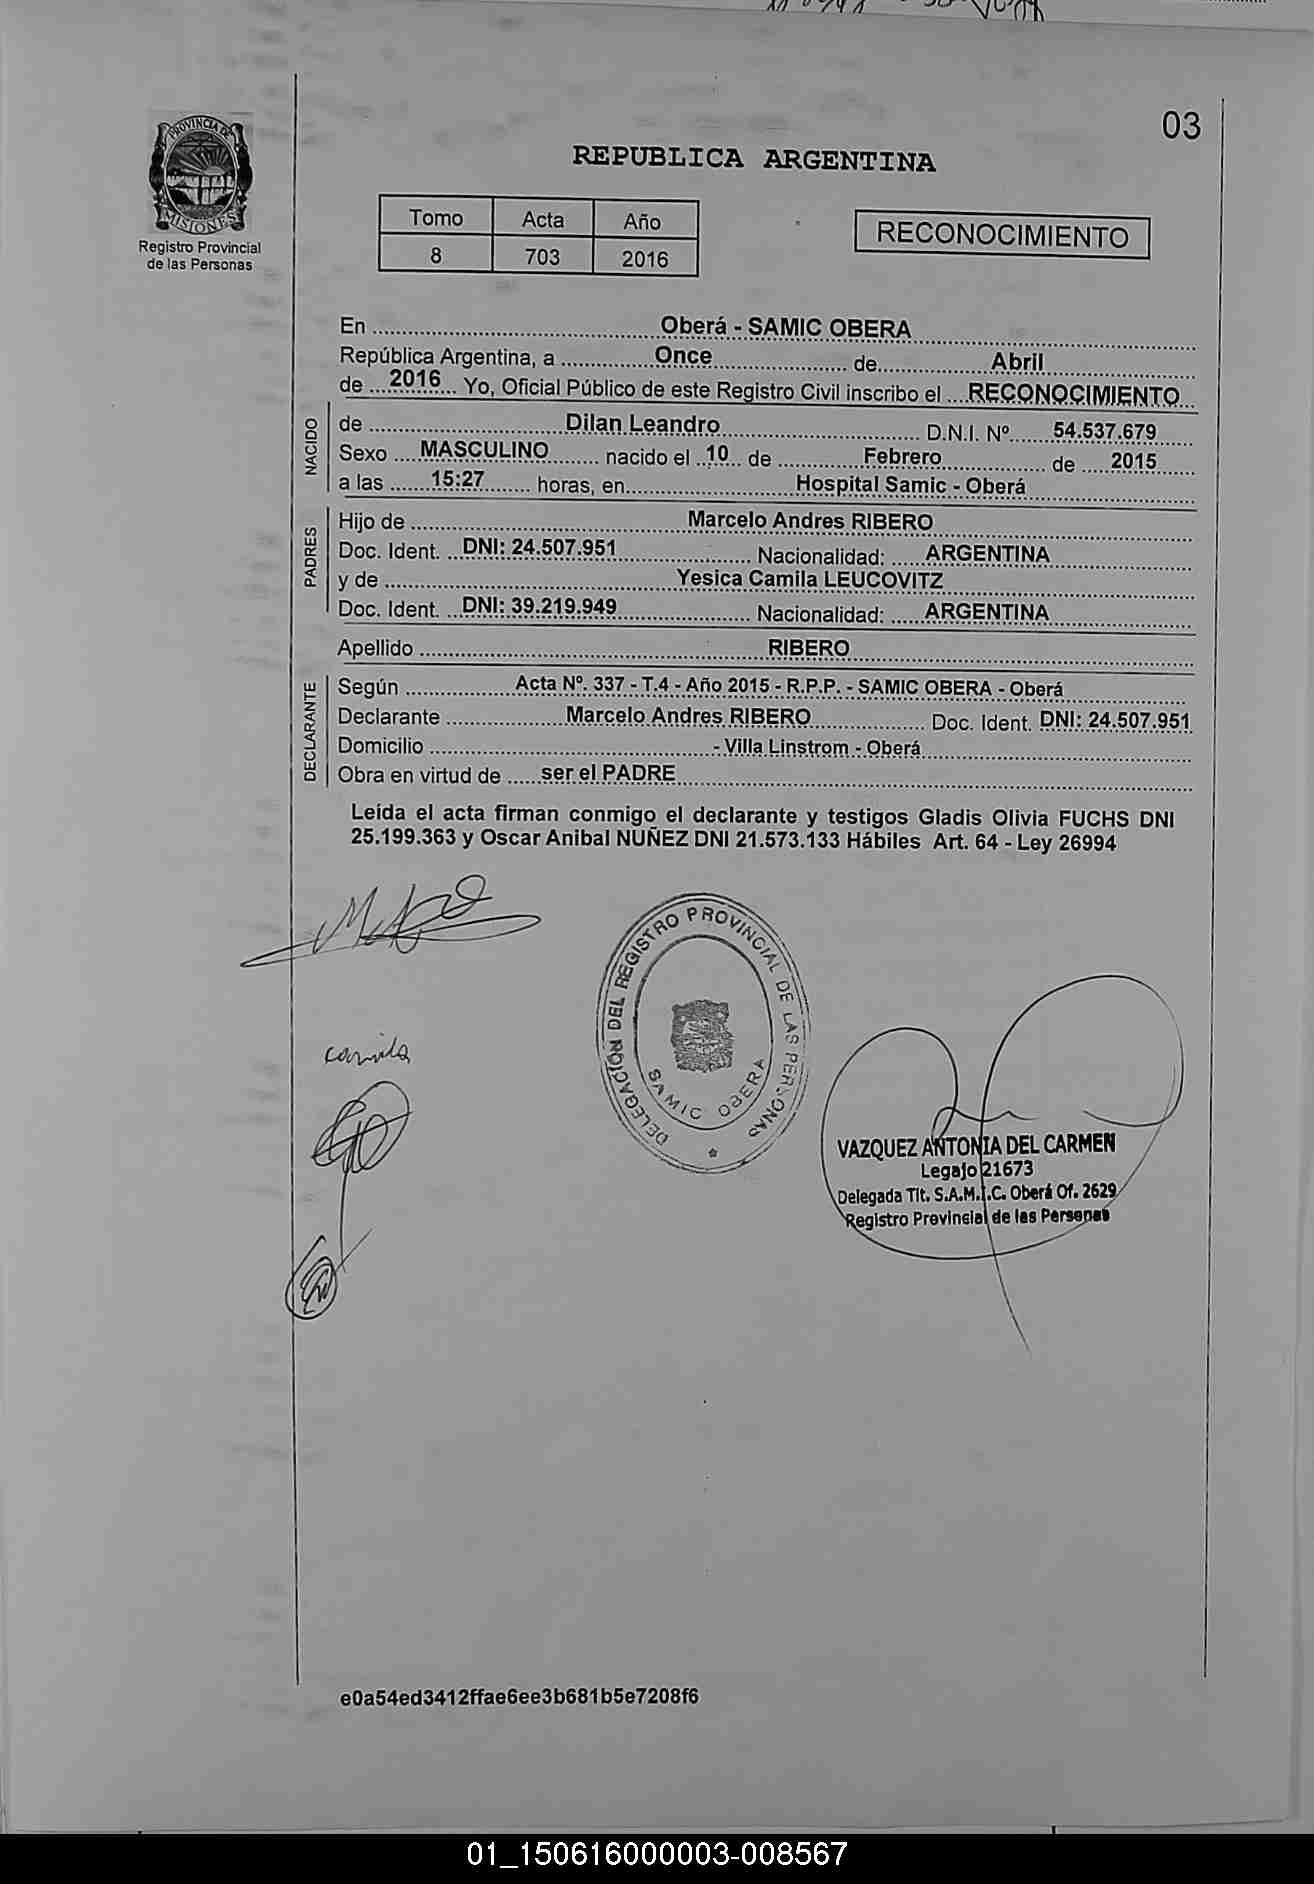 03
PROVINCIA DE
MISIONES
Registro Provincial
de las Personas
REPUBLICA ARGENTINA
Tomo Acta Año
8 703 2016
RECONOCIMIENTO
En Oberá - SAMIC OBERA
República Argentina, a Once de Abril
de 2016 Yo, Oficial Público de este Registro Civil inscribo el RECONOCIMIENTO
NACIDO
de Dilan Leandro D.N.I. Nº 54.537.679
Sexo MASCULINO nacido el 10 de Febrero de 2015
a las 15:27 horas, en Hospital Samic - Oberá
PADRES
Hijo de Marcelo Andres RIBERO
Doc. Ident. DNI: 24.507.951 Nacionalidad: ARGENTINA
y de Yesica Camila LEUCOVITZ
Doc. Ident. DNI: 39.219.949 Nacionalidad: ARGENTINA
Apellido RIBERO
DECLARANTE
Según Acta Nº. 337 - T.4 - Año 2015 - R.P.P. - SAMIC OBERA - Oberá
Declarante Marcelo Andres RIBERO Doc. Ident. DNI: 24.507.951
Domicilio - Villa Linstrom - Oberá
Obra en virtud de ser el PADRE
Leída el acta firman conmigo el declarante y testigos Gladis Olivia FUCHS DNI
25.199.363 y Oscar Anibal NUÑEZ DNI 21.573.133 Hábiles Art. 64 - Ley 26994
DELEGACIÓN DEL REGISTRO PROVINCIAL DE LAS PERSONAS
SAMIC OBERA
camila
VAZQUEZ ANTONIA DEL CARMEN
Legajo 21673
Delegada Tit. S.A.M.I.C. Oberá Of. 2629
Registro Provincial de las Personas
e0a54ed3412ffae6ee3b681b5e7208f6
01_150616000003-008567